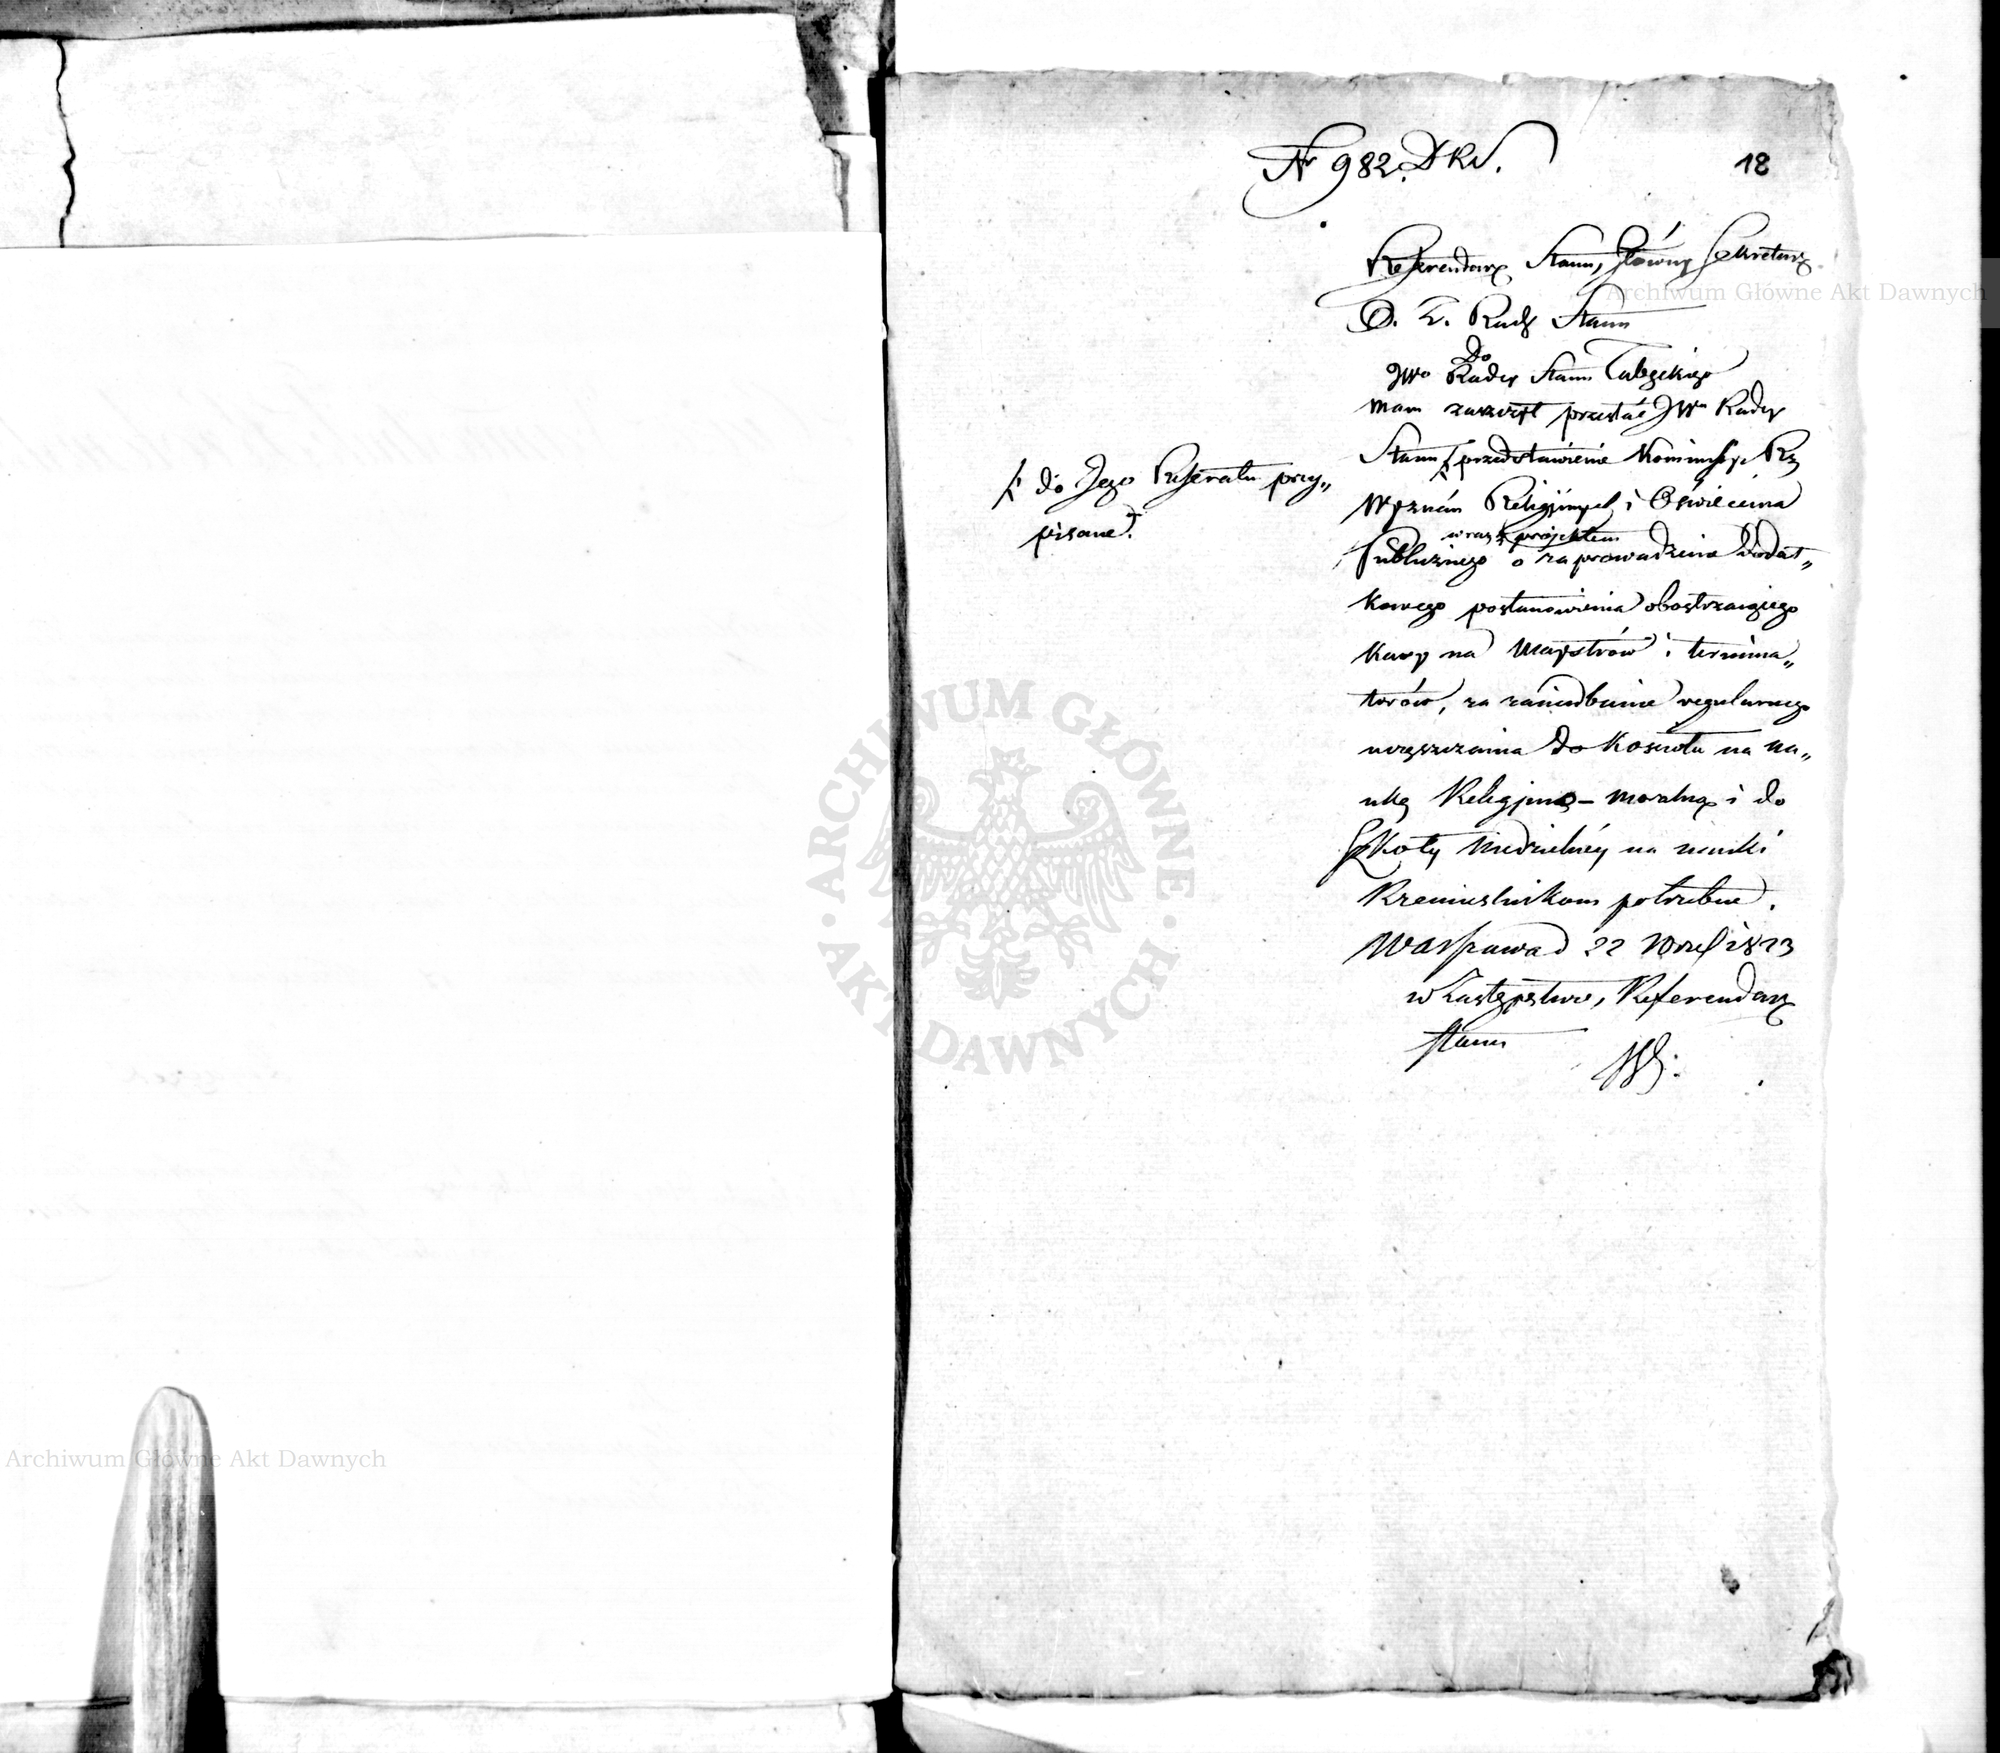 Nr 982. D.K.W.
18
Referendarz Stanu, Główny Sekretarz
D. T. Rady Stanu
Do
JWo Radcy Stanu
mam zaszczyt przesłać JWu Radcy
Stanu przedstawienie Kommissyi Rz
Wyznań Religijnych i Oświecenia
wraz z projektem
Publicznego o zaprowadzenie dodat„
kowego postanowienia obostrzaiącego
kary na Maystrów i termina„
torów, za zaniedbanie regularnego
uczęszczania do Kościoła na na„
ukę Religijno – moralną i do
Szkoły Niedzielnéy na nauki
Rzemieslnikom potrzebne.
Warszawa d 22 1823
w Zastępstwie, Referendarz
Stanu
/: do Jego Referatu przy„
pisane.
Archiwum Główne Akt Dawnych
ARCHIWUM GŁÓWNE · AKT DAWNYCH ·
Archiwum Główne Akt Dawnych